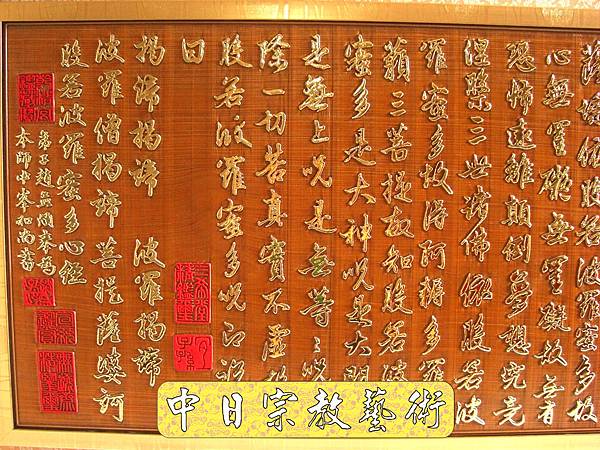 薩埵依般若波羅蜜多故
心無罣礙無罣礙故無有
恐怖遠離顛倒夢想究竟
涅槃三世諸佛依般若波
羅蜜多故得阿耨多羅
藐三菩提故知般若波
蜜多是大神呪是大明
是無上呪是無等々呪
除一切苦真實不虛故
般若波羅蜜多呪即說
曰
揭諦揭諦 波羅揭諦
波羅僧揭諦 菩提薩婆訶
般若波羅蜜多心經
弟子趙孟頫奉為
本師中峯和尚書
中日宗教藝術